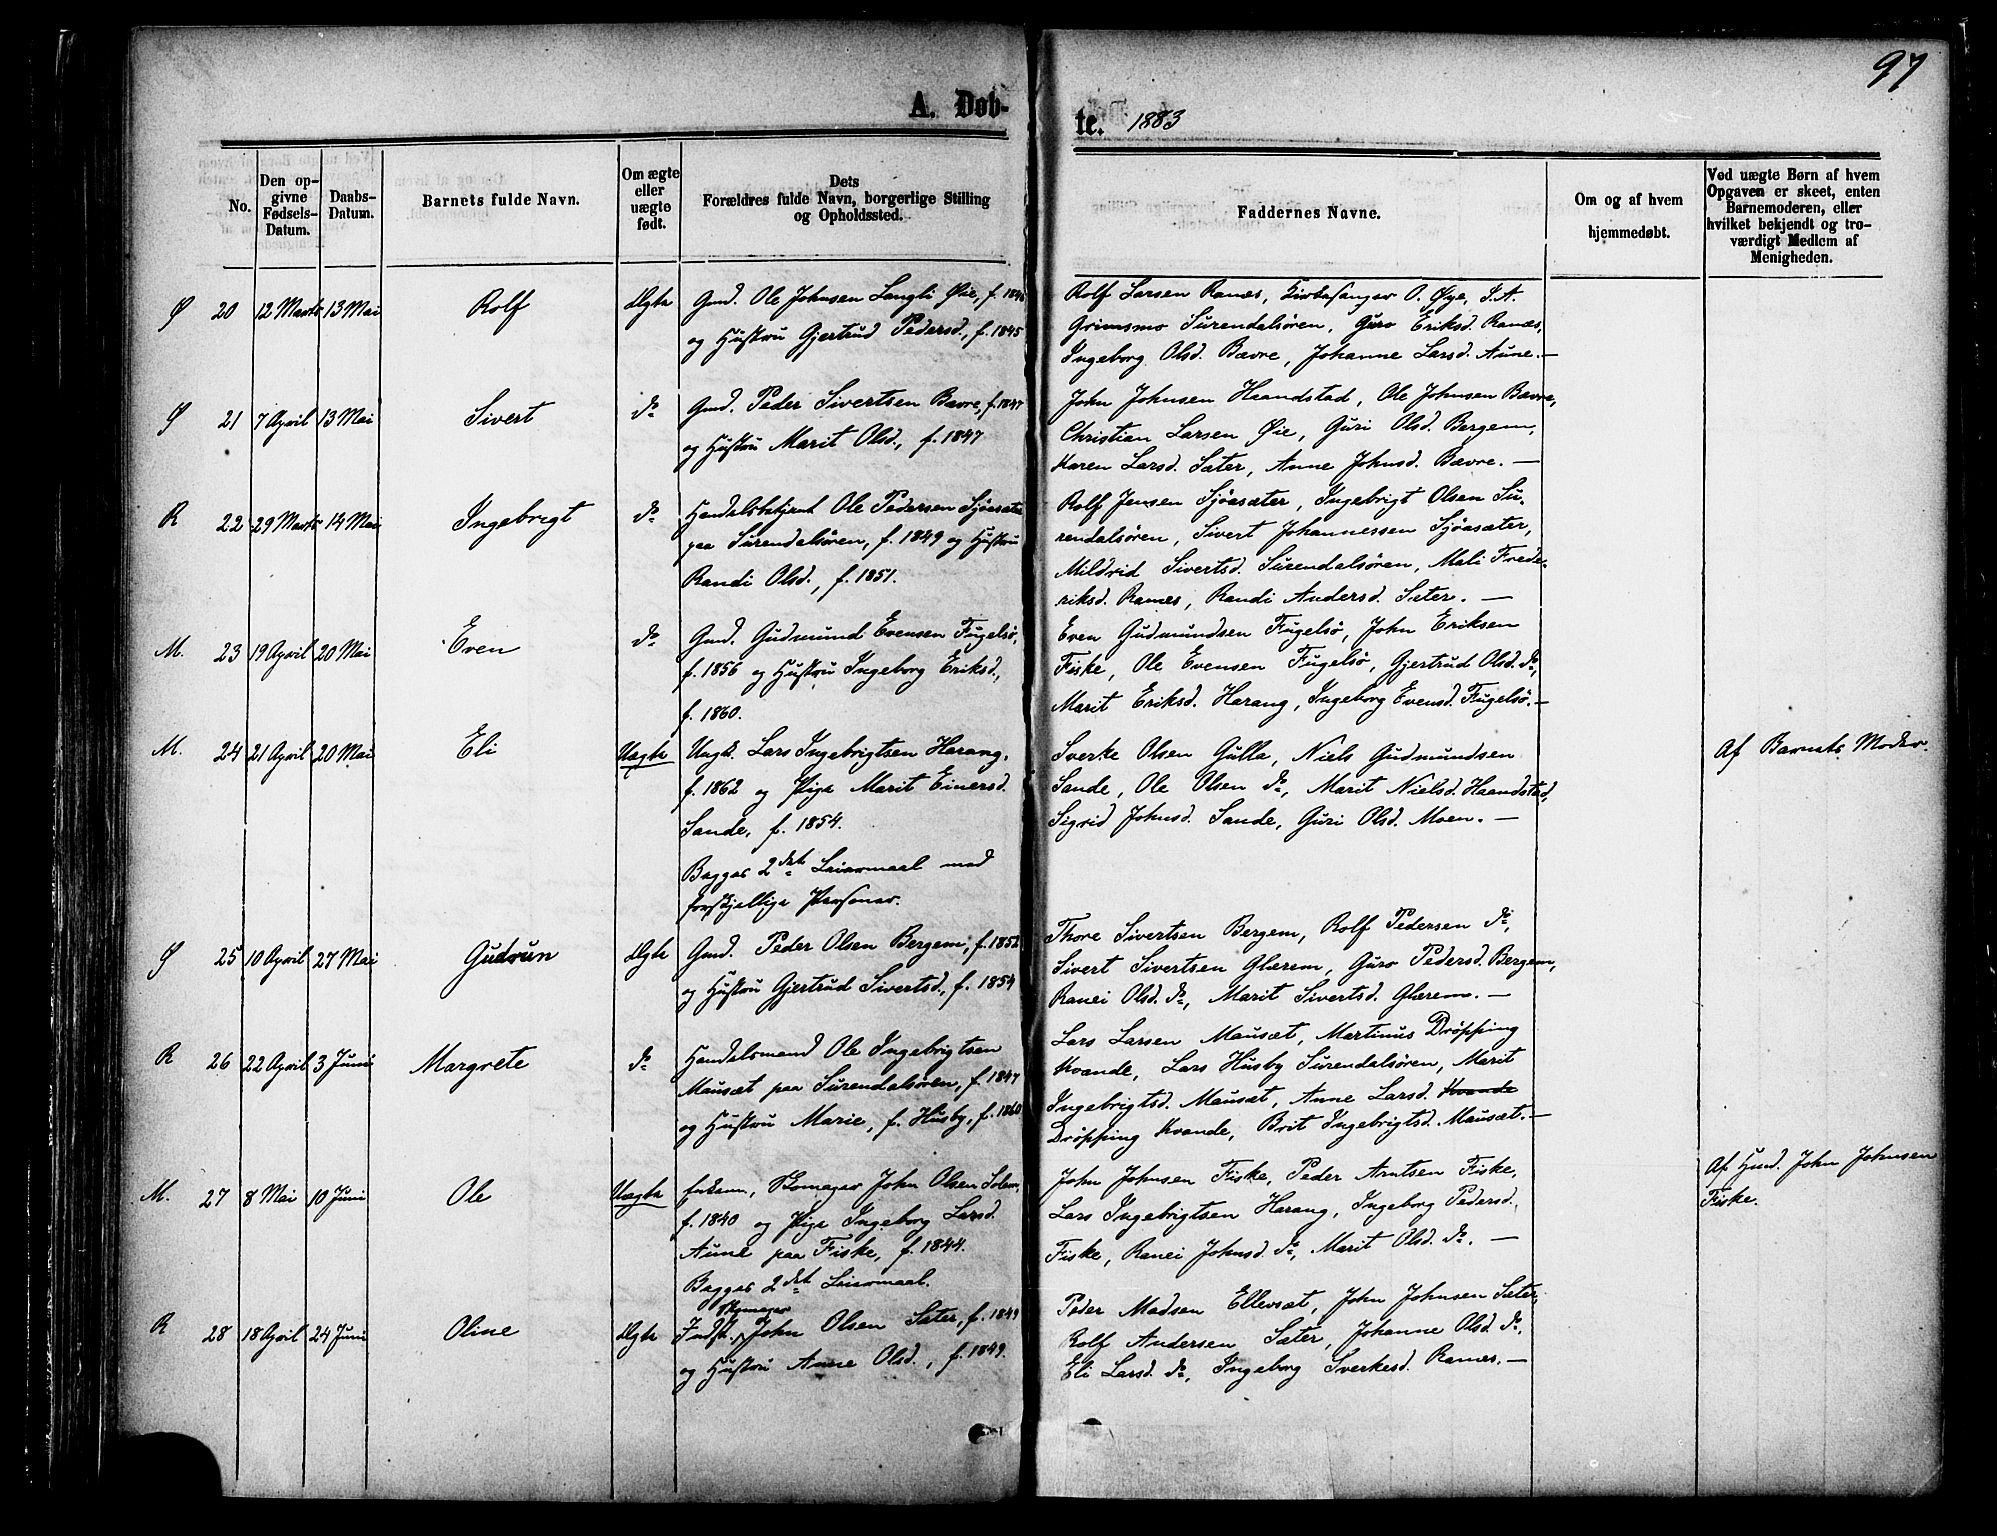 97
A. Døb-
te. 1883
No.
Den op-
givne
Fødsels-
Datum.
Daabs-
Datum.
Barnets fulde Navn.
Om ægte
eller
uægte
født.
Dets
Forældres fulde Navn, borgerlige Stilling
og Opholdssted.
Faddernes Navne.
Om og af hvem
hjemmedøbt.
Ved uægte Børn af hvem
Opgaven er skeet, enten
Barnemoderen, eller
hvilket bekjendt og tro-
værdigt Medlem af
Menigheden.
Ø 20 12 Marts 13 Mai Rolf Ægte
Gmd. Ole Johnsen Langli Øie, f.
og Hustru Gjertrud Pedersd., f. 1845
Rolf Larsen Ranæs, Kirkesanger O. Øye, S. A.
Grimsmo Surendalsøren, Guro Eriksd. Ranæs,
Ingeborg Olsd. Bævre, Johanne Larsd. Aune. —
Ø 21 7 April 13 Mai Sivert do
Gmd. Peder Sivertsen Bævre, f. 1847
og Hustru Marit Olsd., f. 1847
John Johnsen Haandstad, Ole Johnsen Bævre,
Christian Larsen Øie, Guri Olsd. Bergem,
Karen Larsd. Sæter, Anne Johnsd. Bævre. —
R 22 29 Marts 14 Mai Ingebrigt do
Handelsbetjent Ole Pedersen Sjøasæter
paa Surendalsøren, f. 1849 og Hustru
Randi Olsd., f. 1851.
Rolf Jensen Sjøasæter, Ingebrigt Olsen Su-
rendalsøren, Sivert Johannessen Sjøasæter,
Mildrid Sivertsd. Surendalsøren, Mali Frede-
riksd. Ranæs, Randi Andersd. Sæter. —
M. 23 19 April 20 Mai Even do
Gmd. Gudmund Evensen Fugelsø,
f. 1856 og Hustru Ingeborg Eriksd.,
f. 1860.
Even Gudmundsen Fugelsø, John Eriksen
Fiske, Ole Evensen Fugelsø, Gjertrud Olsd. do,
Marit Eriksd. Harang, Ingeborg Evensd. Fugelsø. —
M. 24 21 April 20 Mai Eli Uægte
Ungk. Lars Ingebrigtsen Harang,
f. 1862 og Pige Marit Einersd.
Sande, f. 1854.
Begges 2det Leiermaal med
forskjellige Personer.
Sverke Olsen Gulla, Niels Gudmundsen
Sande, Ole Olsen do, Marit Nielsd. Haandstad,
Sigrid Johnsd. Sande, Guri Olsd. Moen. —
Af Barnets Moder.
Ø 25 10 April 27 Mai Gudrun Ægte
Gmd. Peder Olsen Bergem, f. 1852
og Hustru Gjertrud Sivertsd., f. 1854
Thore Sivertsen Bergem, Rolf Pedersen do,
Sivert Sivertsen Glærem, Guro Pedersd. Bergem,
Ranei Olsd. do, Marit Sivertsd. Glærem. —
R 26 22 April 3 Juni Margrete do
Handelsmand Ole Ingebrigtsen
Mausæt paa Surendalsøren, f. 1847
og Hustru Marie, f. Husby, f. 1860
Lars Larsen Mausæt, Martinus Drøpping
Kvande, Lars Husby Surendalsøren, Marit
Ingebrigtsd. Mausæt, Anne Larsd. Kvande
Drøpping Kvande, Brit Ingebrigtsd. Mausæt. —
M. 27 8 Mai 10 Juni Ole Uægte
Enkem., Skomager John Olsen Solem,
f. 1840 og Pige Ingeborg Larsd.
Aune paa Fiske, f. 1844.
Begges 2det Leiermaal.
John Johnsen Fiske, Peder Arntsen Fiske,
Lars Ingebrigtsen Harang, Ingeborg Pedersd.
Fiske, Ranei Johnsd. do, Marit Olsd. do. —
Af Gmd. John Johnsen
Fiske.
R 28 18 April 24 Juni Oline Ægte
Skomager
Indst. John Olsen Sæter, f. 1849
og Hustru Anne Olsd., f. 1849.
Peder Madsen Ellevsæt, John Johnsen Sæter,
Rolf Andersen Sæter, Johanne Olsd. do,
Eli Larsd. do, Ingeborg Sverkesd. Ranæs. —